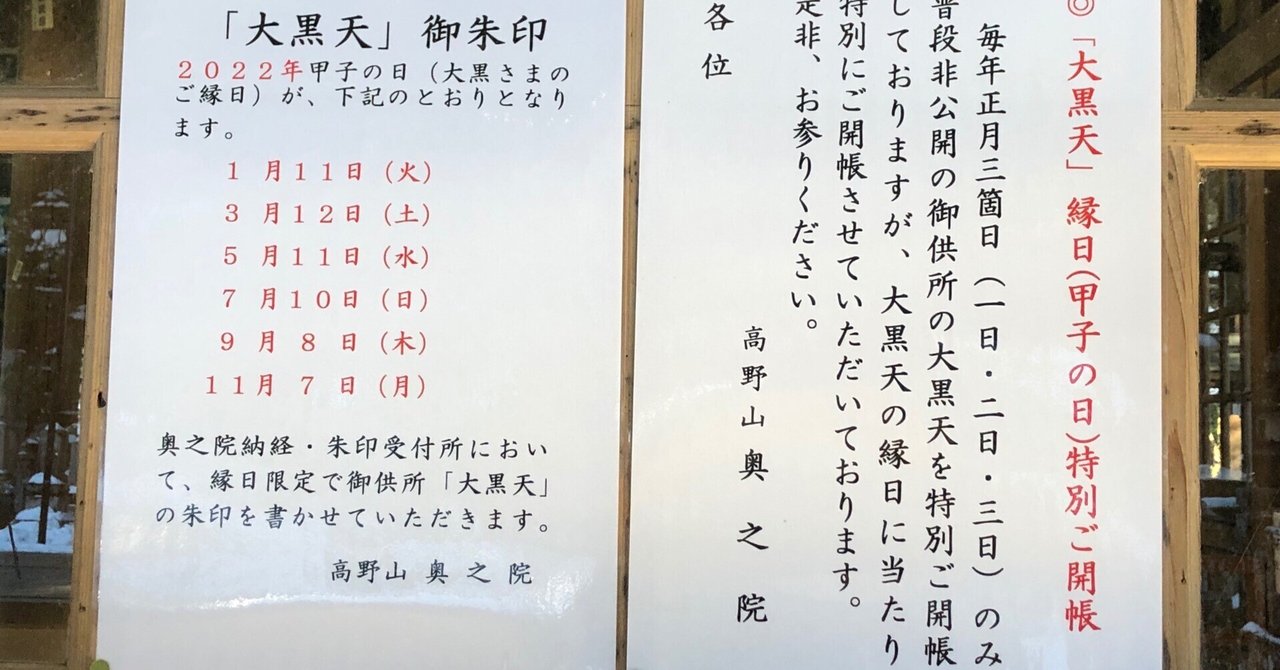 「大黒天」御朱印
２０２２年甲子の日（大黒さまの
ご縁日）が、下記のとおりとなり
ます。
１月１１日（火）
３月１２日（土）
５月１１日（水）
７月１０日（日）
９月８日（木）
１１月７日（月）
奥之院納経・朱印受付所におい
て、縁日限定で御供所「大黒天」
の朱印を書かせていただきます。
高野山 奥之院
◎「大黒天」縁日（甲子の日）特別ご開帳
毎年正月三箇日（一日・二日・三日）のみ
普段非公開の御供所の大黒天を特別ご開帳
しておりますが、大黒天の縁日に当たり
特別にご開帳させていただいております。
是非、お参りください。
高野山奥之院
各位